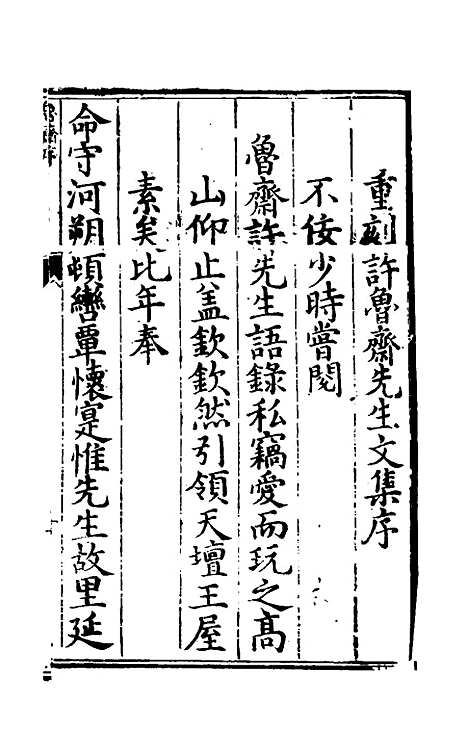 重刻許魯齋先生文集序
不佞少時嘗閱
魯齋許先生語錄私竊愛而玩之高
山仰止盖欽欽然引領天壇王屋
素矣比年奉
命守河朔頓轡覃懷寔惟先生故里延